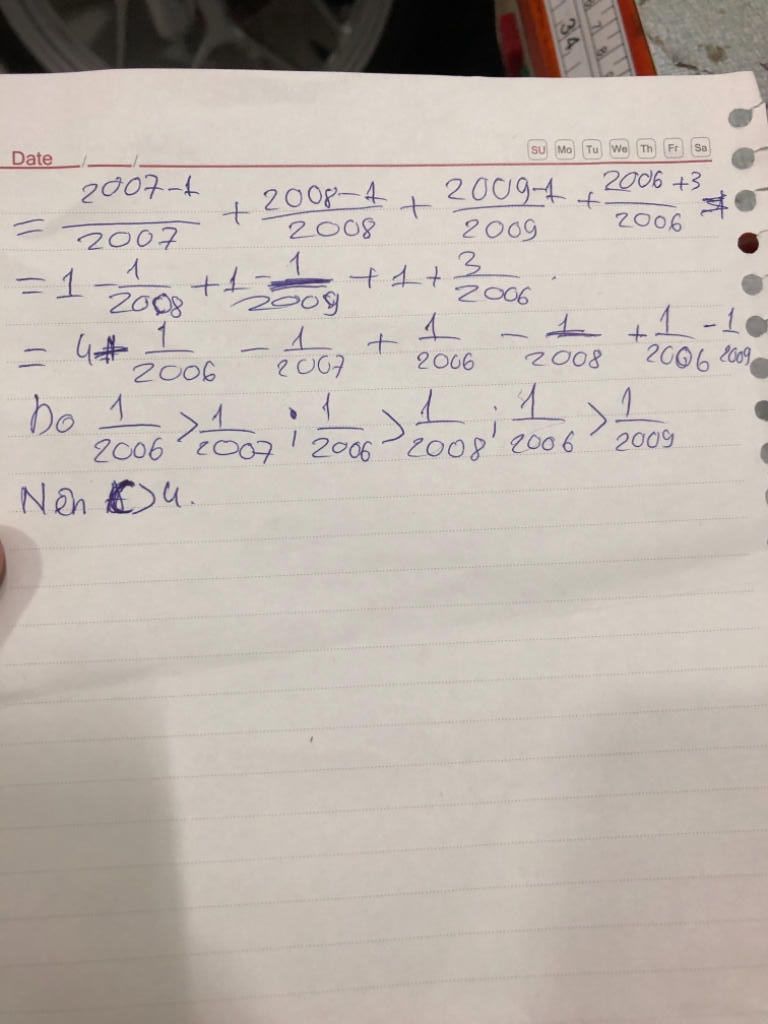 34 7 8
Date / / SU Mo Tu We Th Fr Sa
= 2007-1/2007 + 2008-1/2008 + 2009-1/2009 + 2006+3/2006
= 1 - 1/2008 + 1 - 1/2009 + 1 + 3/2006.
= 4 + 1/2006 - 1/2007 + 1/2006 - 1/2008 + 1/2006 - 1/2009
Do 1/2006 > 1/2007 ; 1/2006 > 1/2008 ; 1/2006 > 1/2009
Nên C > 4.